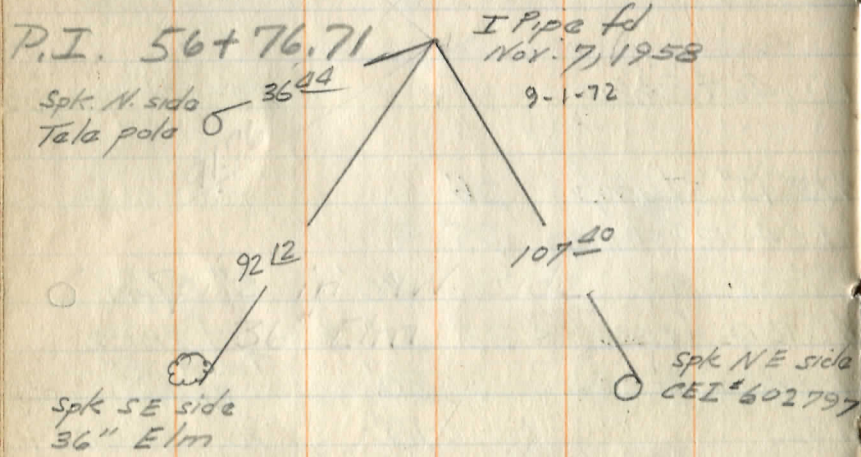 P.I. 56+76.71
I Pipe fd
Nov. 7, 1958
9-1-72
Spk. N. side
Tele pole
36 44
92 12
107 40
Spk SE side
36" Elm
Spk NE side
CEI #602797
36" Elm